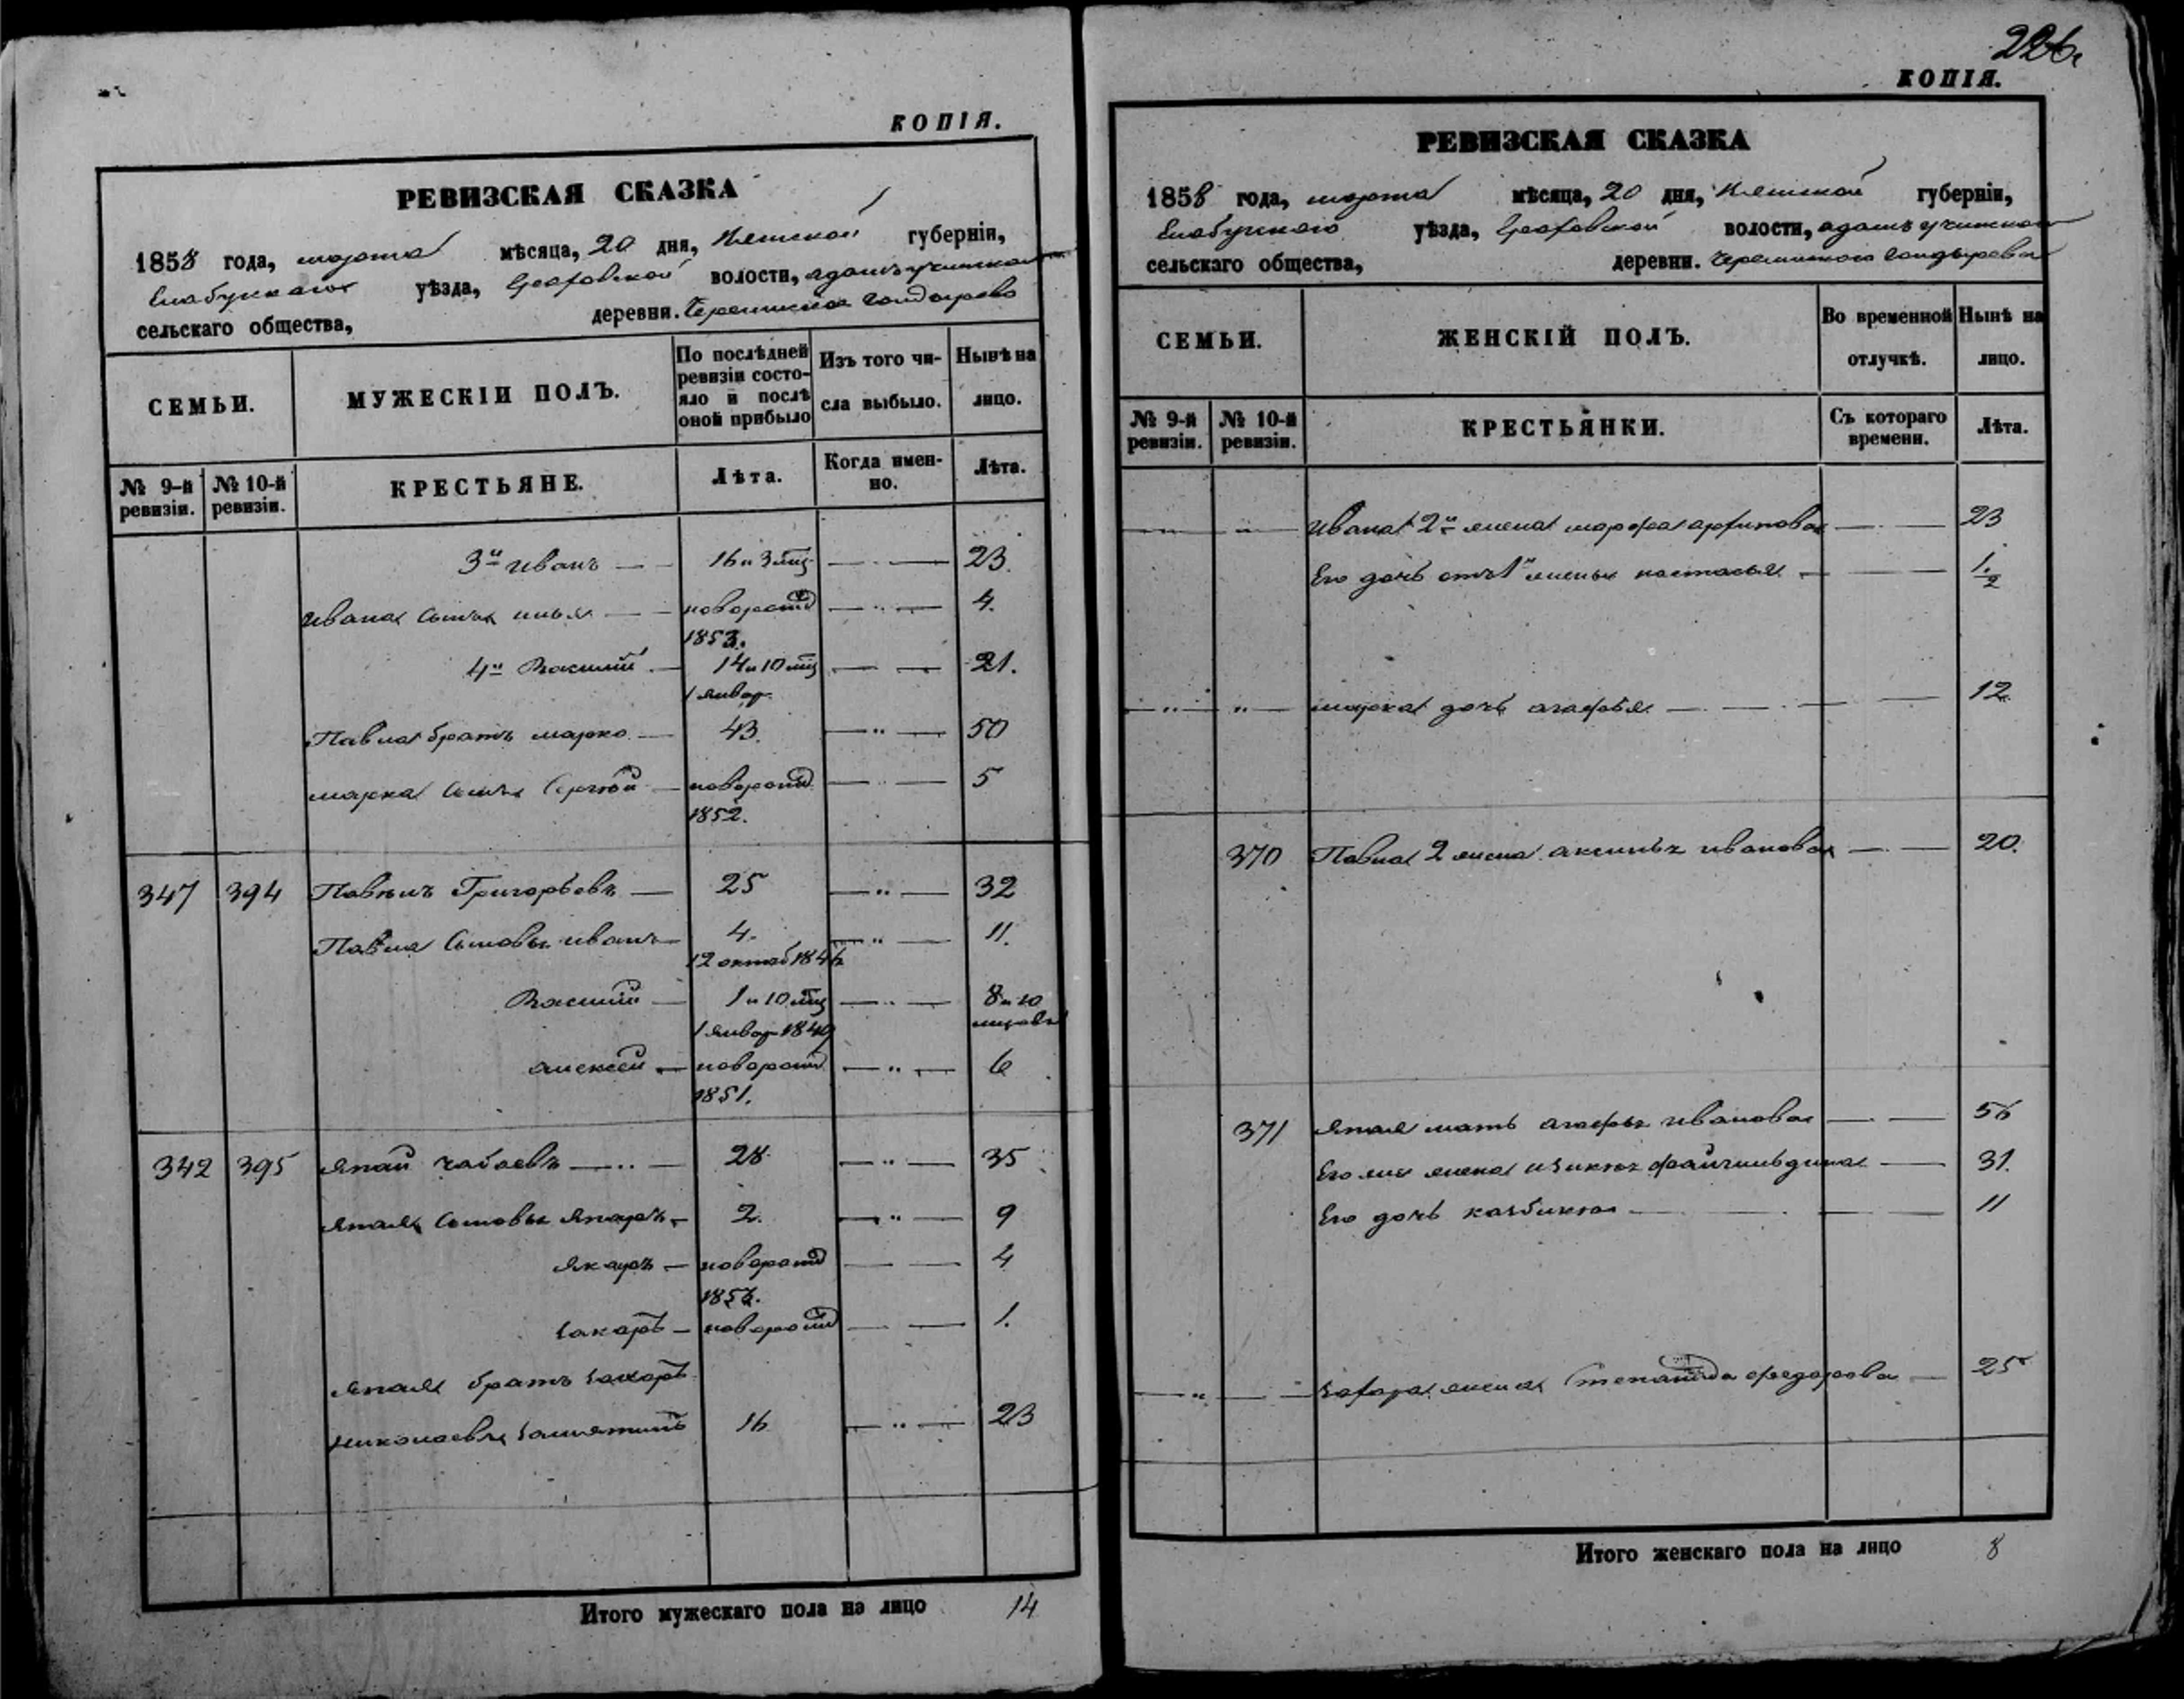 КОПІЯ.
РЕВИЗСКАЯ СКАЗКА
1858 года, марта мѣсяца, 20 дня, Вятской губерніи,
Елабужскаго уѣзда, Граховской волости,
сельскаго общества, деревни.
СЕМЬИ. МУЖЕСКІЙ ПОЛЪ. По послѣдней ревизіи состояло и послѣ оной прибыло Изъ того числа выбыло. Нынѣ на лицо.
№ 9-й ревизіи. № 10-й ревизіи. КРЕСТЬЯНЕ. Лѣта. Когда именно. Лѣта.
3й Иванъ 16 и 3 мѣц 23.
Ивана сынъ Илья новорожд 4.
4й Василий 14 и 10 мѣц 21.
1 январ
Павла братъ Марко 43 50
Марка сынъ Сергѣй новорожд 5
1852.
347 394 Павелъ Григорьевъ 25 32
Павла сыновья Иванъ 4. 11.
12 октяб 1846
Василий 1 и 10 мѣц 8 и 10
1 январ 1849
Алексей новорожд 6
1851.
342 395 Япай Чабаевъ 28 35
Япая сыновья Япаръ 2. 9
Якаръ новорожд 4
Захаръ новорожд 1.
Япая братъ Захаръ
Николаевъ Замятинъ 16 23
Итого мужескаго пола на лицо 14
226.
КОПІЯ.
РЕВИЗСКАЯ СКАЗКА
1858 года, марта мѣсяца, 20 дня, Вятской губерніи,
Елабужскаго уѣзда, Граховской волости,
сельскаго общества, деревни.
СЕМЬИ. ЖЕНСКІЙ ПОЛЪ. Во временной отлучкѣ. Нынѣ на лицо.
№ 9-й ревизіи. № 10-й ревизіи. КРЕСТЬЯНКИ. Съ котораго времени. Лѣта.
Ивана 2я жена Марфа 23
Его дочь отъ 1й жены Настасья 1/2
Марка дочь Агафья 12
370 Павла 2 жена Аксинья Иванова 20.
371 Япая мать Агафья Иванова 56
жена 31.
Его дочь 11
Захара жена Степанида Федорова 25
Итого женскаго пола на лицо 8